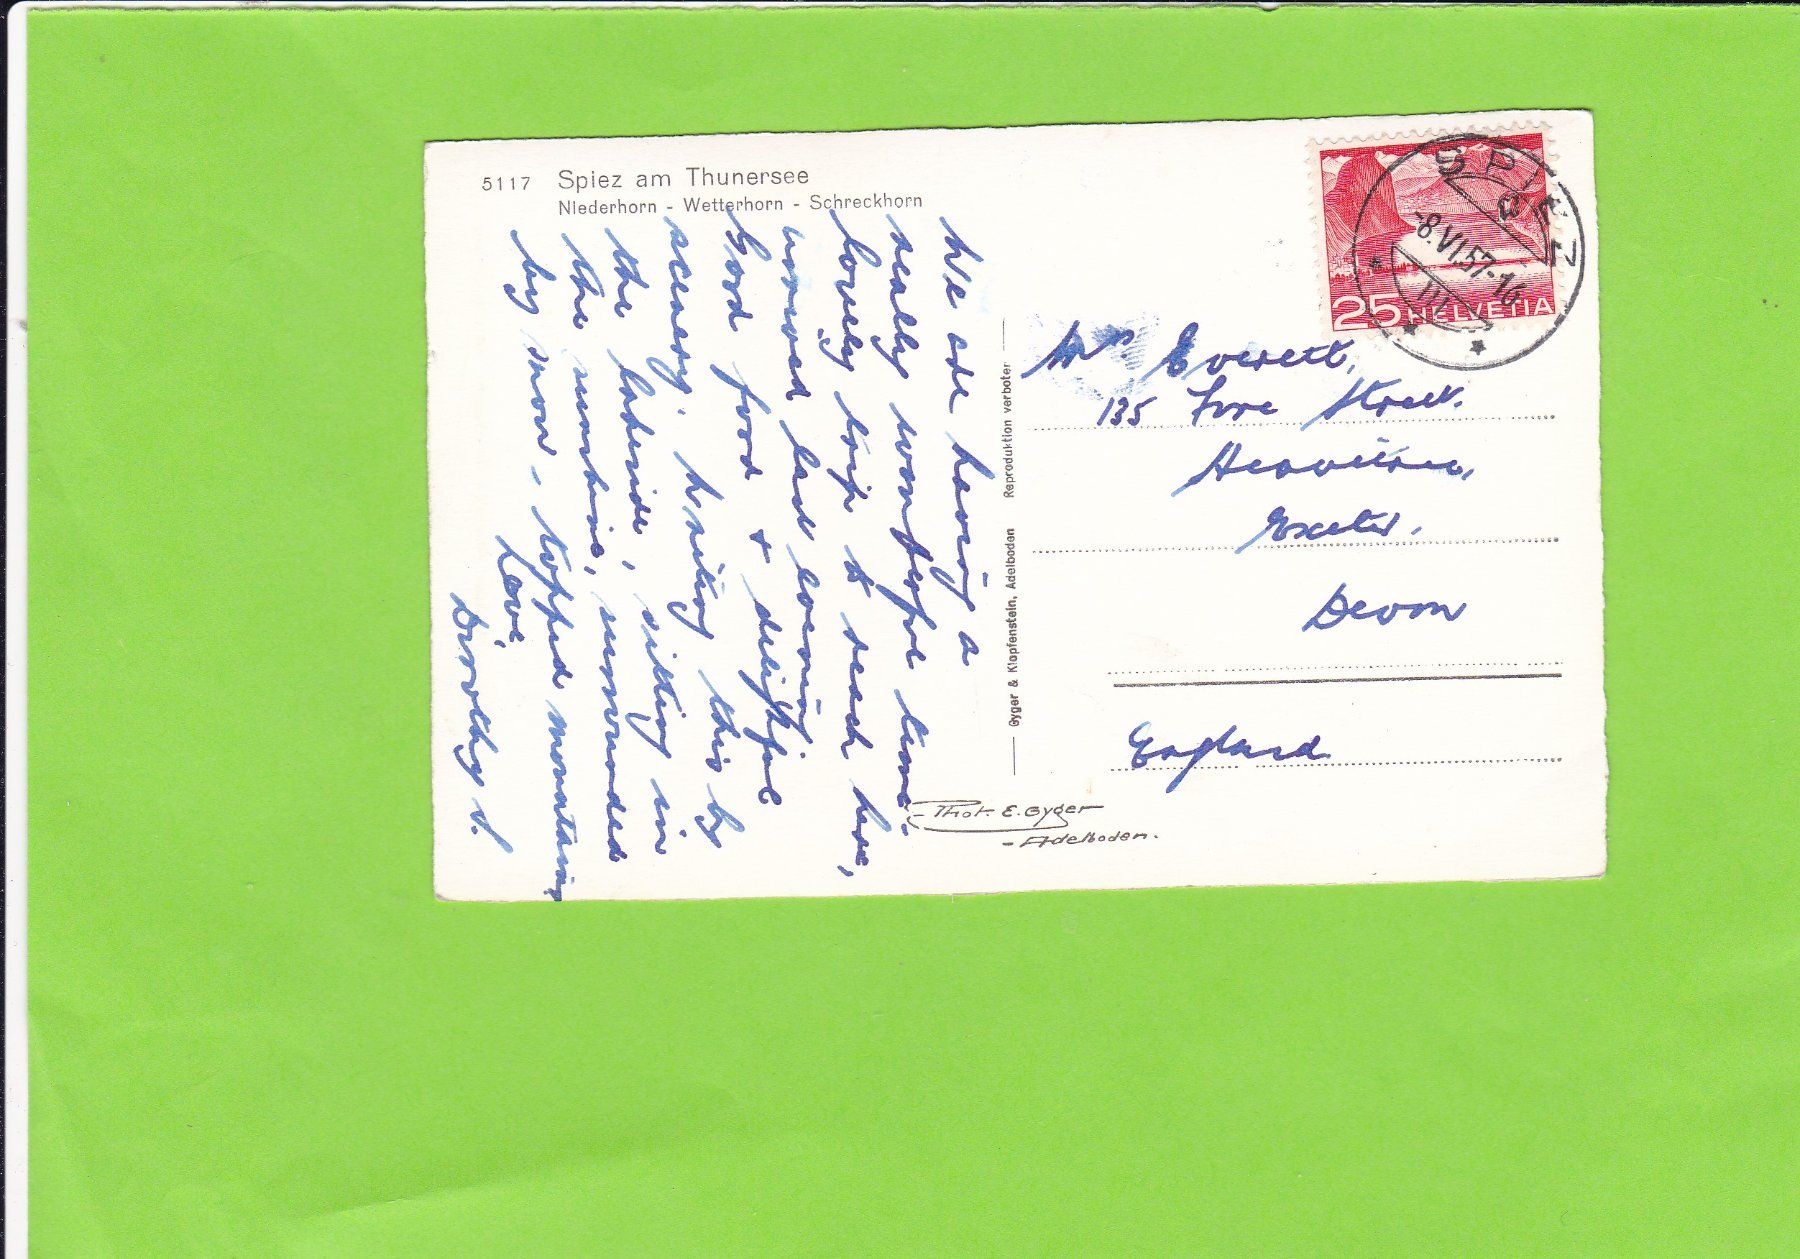 5117 Spiez am Thunersee
Niederhorn - Wetterhorn - Schreckhorn
We are having a
really wonderful time.
lovely trip to reach here,
arrived last evening
Good food + delightful
scenery. writing this by
the lakeside, sitting in
the sunshine, surrounded
by snow-topped mountains
Love,
Dorothy S.
Gyger & Klopfenstein, Adelboden Reproduktion verboten
Phot. E. Gyger
- Adelboden.
SPIEZ
-8.VI.57-16
25 HELVETIA
Mrs. Everett,
135 Fore Street.
Heavitree,
Exeter.
Devon
England